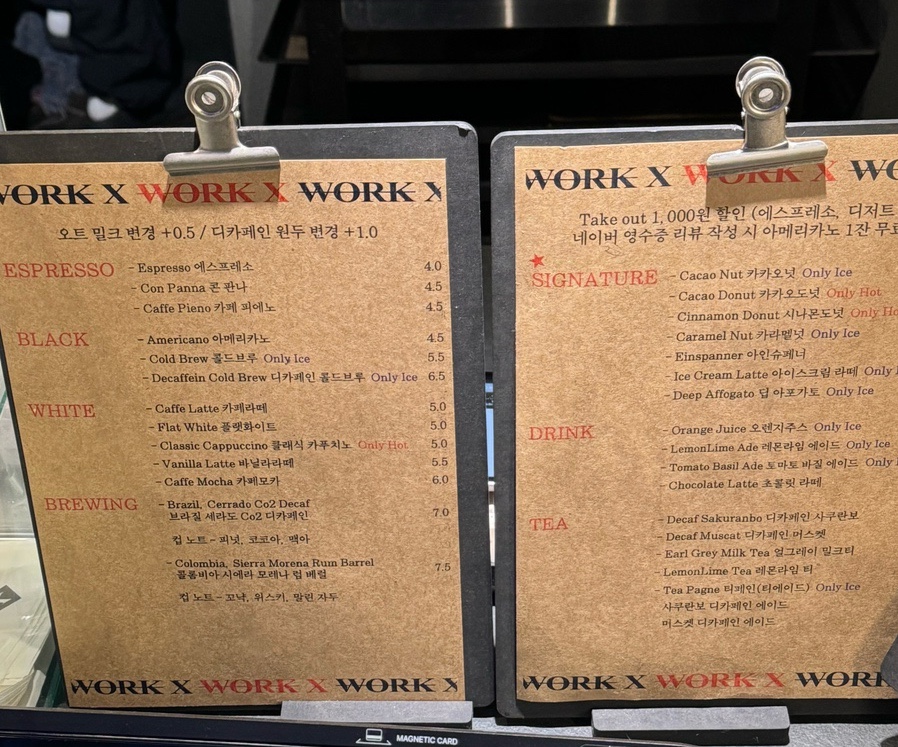 WORK X WORK X WORK X
오트 밀크 변경 +0.5 / 디카페인 원두 변경 +1.0
ESPRESSO
- Espresso 에스프레소 4.0
- Con Panna 콘 판나 4.5
- Caffe Pieno 카페 피에노 4.5
BLACK
- Americano 아메리카노 4.5
- Cold Brew 콜드브루 Only Ice 5.5
- Decaffein Cold Brew 디카페인 콜드브루 Only Ice 6.5
WHITE
- Caffe Latte 카페라떼 5.0
- Flat White 플랫화이트 5.0
- Classic Cappuccino 클래식 카푸치노 Only Hot 5.0
- Vanilla Latte 바닐라라떼 5.5
- Caffe Mocha 카페모카 6.0
BREWING
- Brazil, Cerrado Co2 Decaf 7.0
브라질 세라도 Co2 디카페인
컵 노트 - 피넛, 코코아, 맥아
- Colombia, Sierra Morena Rum Barrel 7.5
콜롬비아 시에라 모레나 럼 베럴
컵 노트 - 꼬냑, 위스키, 말린 자두
WORK X WORK X WORK X
WORK X WORK X WO
Take out 1,000원 할인 (에스프레소, 디저트
네이버 영수증 리뷰 작성 시 아메리카노 1잔 무료
SIGNATURE
- Cacao Nut 카카오넛 Only Ice
- Cacao Donut 카카오도넛 Only Hot
- Cinnamon Donut 시나몬도넛 Only Ho
- Caramel Nut 카라멜넛 Only Ice
- Einspanner 아인슈페너
- Ice Cream Latte 아이스크림 라떼 Only
- Deep Affogato 딥 아포가토 Only Ice
DRINK
- Orange Juice 오렌지주스 Only Ice
- LemonLime Ade 레몬라임 에이드 Only Ice
- Tomato Basil Ade 토마토 바질 에이드 Only
- Chocolate Latte 초콜릿 라떼
TEA
- Decaf Sakuranbo 디카페인 사쿠란보
- Decaf Muscat 디카페인 머스켓
- Earl Grey Milk Tea 얼그레이 밀크티
- LemonLime Tea 레몬라임 티
- Tea Pagne 티페인(티에이드) Only Ice
사쿠란보 디카페인 에이드
머스켓 디카페인 에이드
WORK X WORK X WORK
MAGNETIC CARD